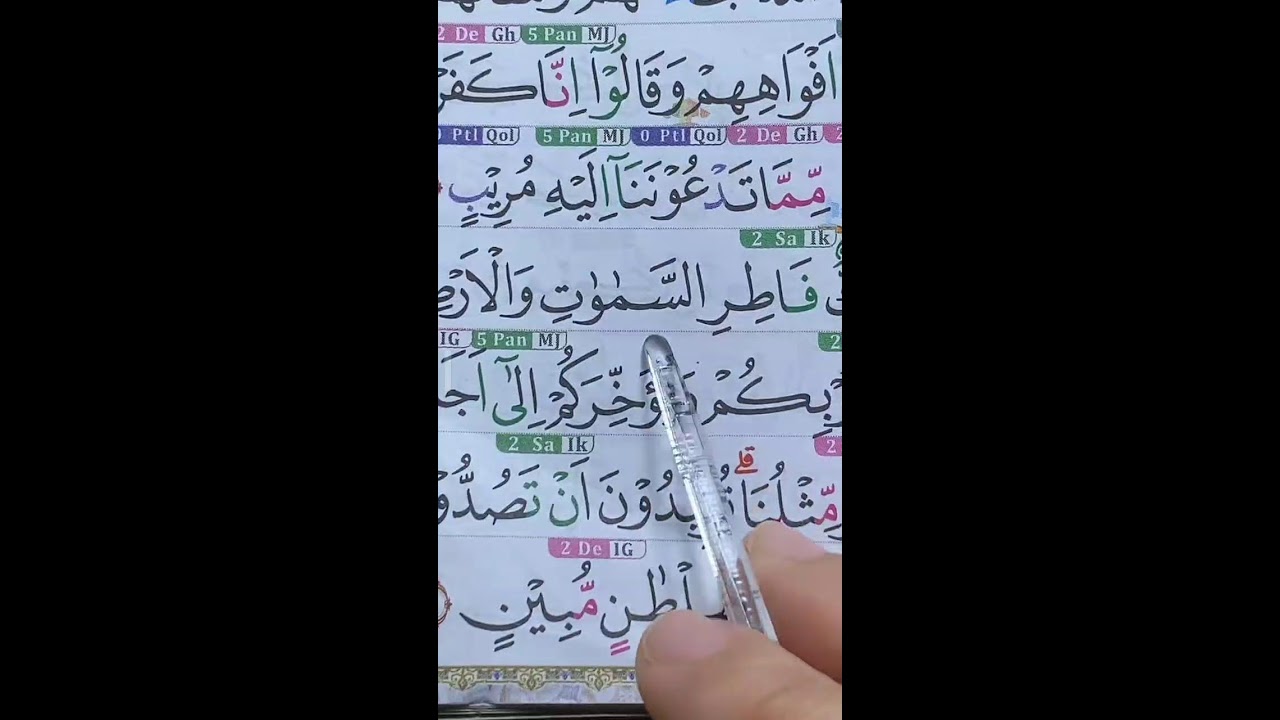 2 De Gh 5 Pan MJ
اَفْوَاهِهِمْ وَقَالُوْٓا اِنَّا كَفَرْ
0 Ptl Qol 5 Pan MJ 0 Ptl Qol 2 De Gh 2
مِّمَّا تَدْعُوْنَنَآ اِلَيْهِ مُرِيْبٍ
2 Sa Ik
فَاطِرِ السَّمٰوٰتِ وَالْاَرْضِ
IG 5 Pan MJ 2
بِكُمْ وَيُؤَخِّرَكُمْ اِلٰٓى اَجَ
2 Sa Ik 2
مِّثْلُنَاۗ تُرِيْدُوْنَ اَنْ تَصُدُّوْ
2 De IG
لْطٰنٍ مُّبِيْنٍ